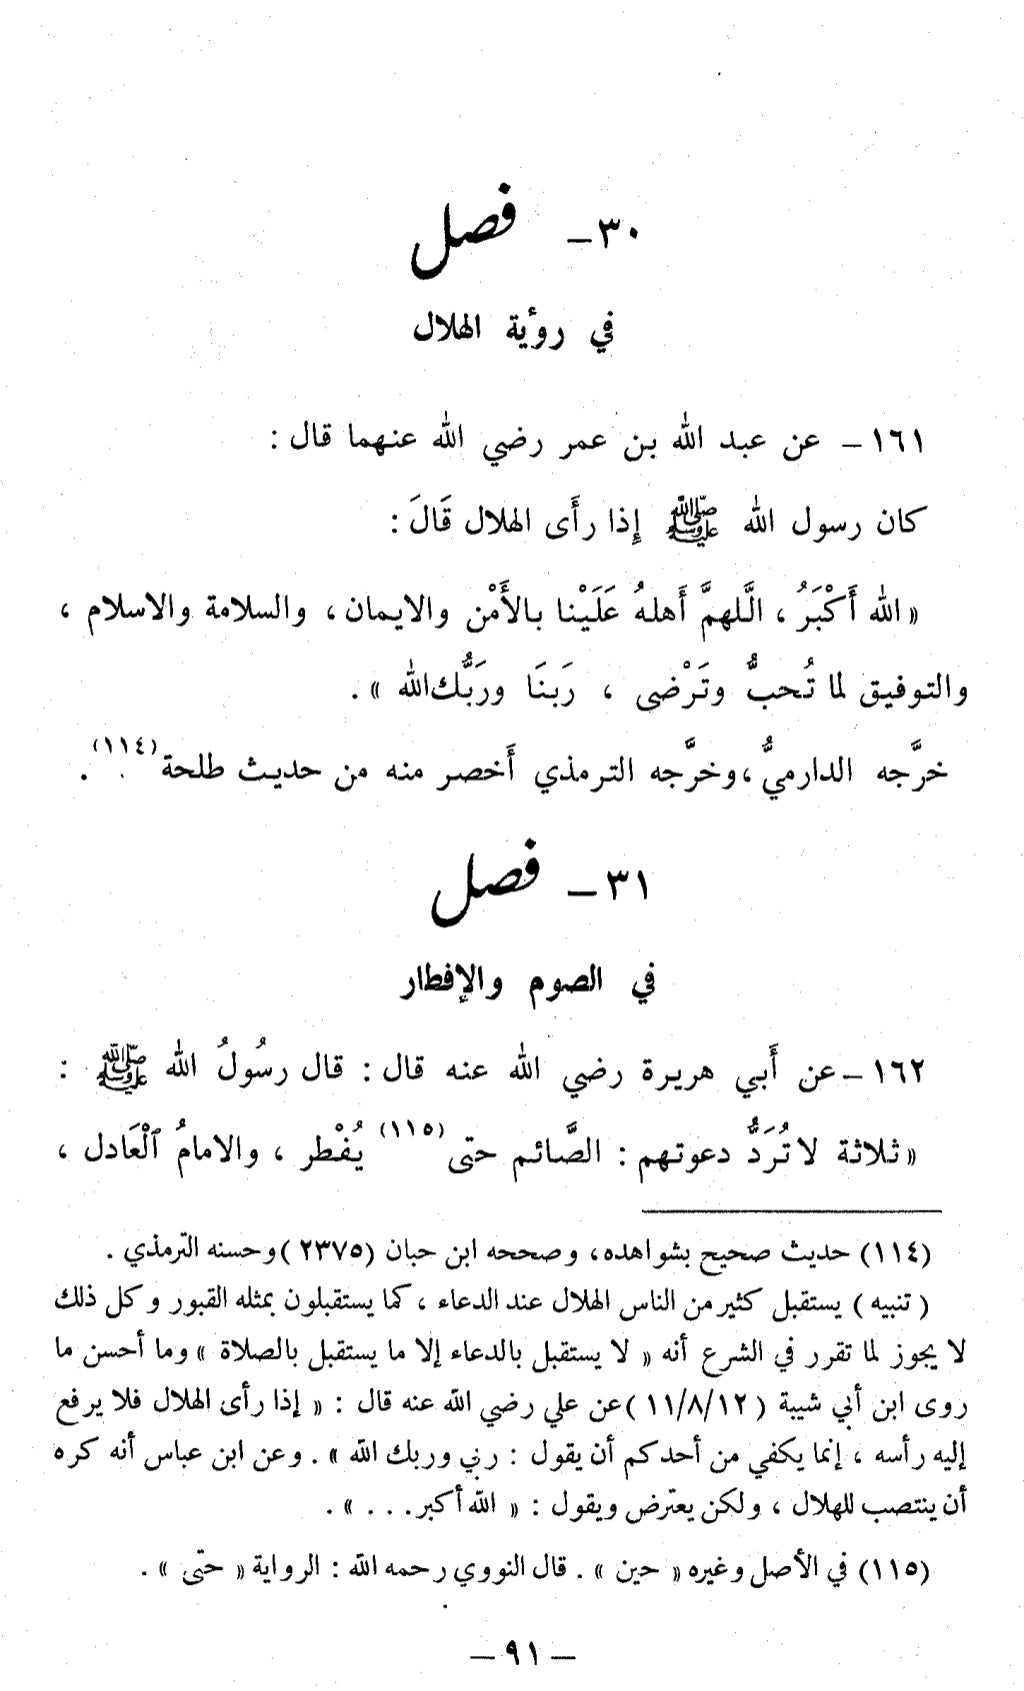 ٣٠ - فصل
في رؤية الهلال
١٦١ - عن عبد الله بن عمر رضي الله عنهما قال :
كان رسول الله ﷺ إِذا رأَى الهلال قَالَ :
« الله أَكْبَرُ ، الَّلهمَّ أَهلهُ عَلَيْنا بالأَمْن والايمان ، والسلامة والاسلام ،
والتوفيق لما تُحبُّ وتَرْضى ، رَبنَا ورَبُّك الله » .
خرَّجه الدارميُّ ، وخرَّجه الترمذي أَخصر منه من حديث طلحة (١١٤) .
٣١ - فصل
في الصوم والإفطار
١٦٢ - عن أَبي هريرة رضي الله عنه قال : قال رسُولُ الله ﷺ :
« ثلاثة لا تُرَدُّ دعوتهم : الصَّائم حتى (١١٥) يُفْطر ، والامامُ ٱلْعَادل ،
(١١٤) حديث صحيح بشواهده، وصححه ابن حبان (٢٣٧٥) وحسنه الترمذي .
( تنبيه ) يستقبل كثير من الناس الهلال عند الدعاء ، كما يستقبلون بمثله القبور وكل ذلك
لا يجوز لما تقرر في الشرع أنه « لا يستقبل بالدعاء إلا ما يستقبل بالصلاة » وما أحسن ما
روى ابن أبي شيبة ( ١١/٨/١٢ ) عن علي رضي الله عنه قال : « إذا رأى الهلال فلا يرفع
إليه رأسه ، إنما يكفي من أحدكم أن يقول : ربي وربك الله » . وعن ابن عباس أنه كره
أن ينتصب للهلال ، ولكن يعترض ويقول : « الله أكبر . . . » .
(١١٥) في الأصل وغيره « حين » . قال النووي رحمه الله : الرواية « حتى » .
- ٩١ -